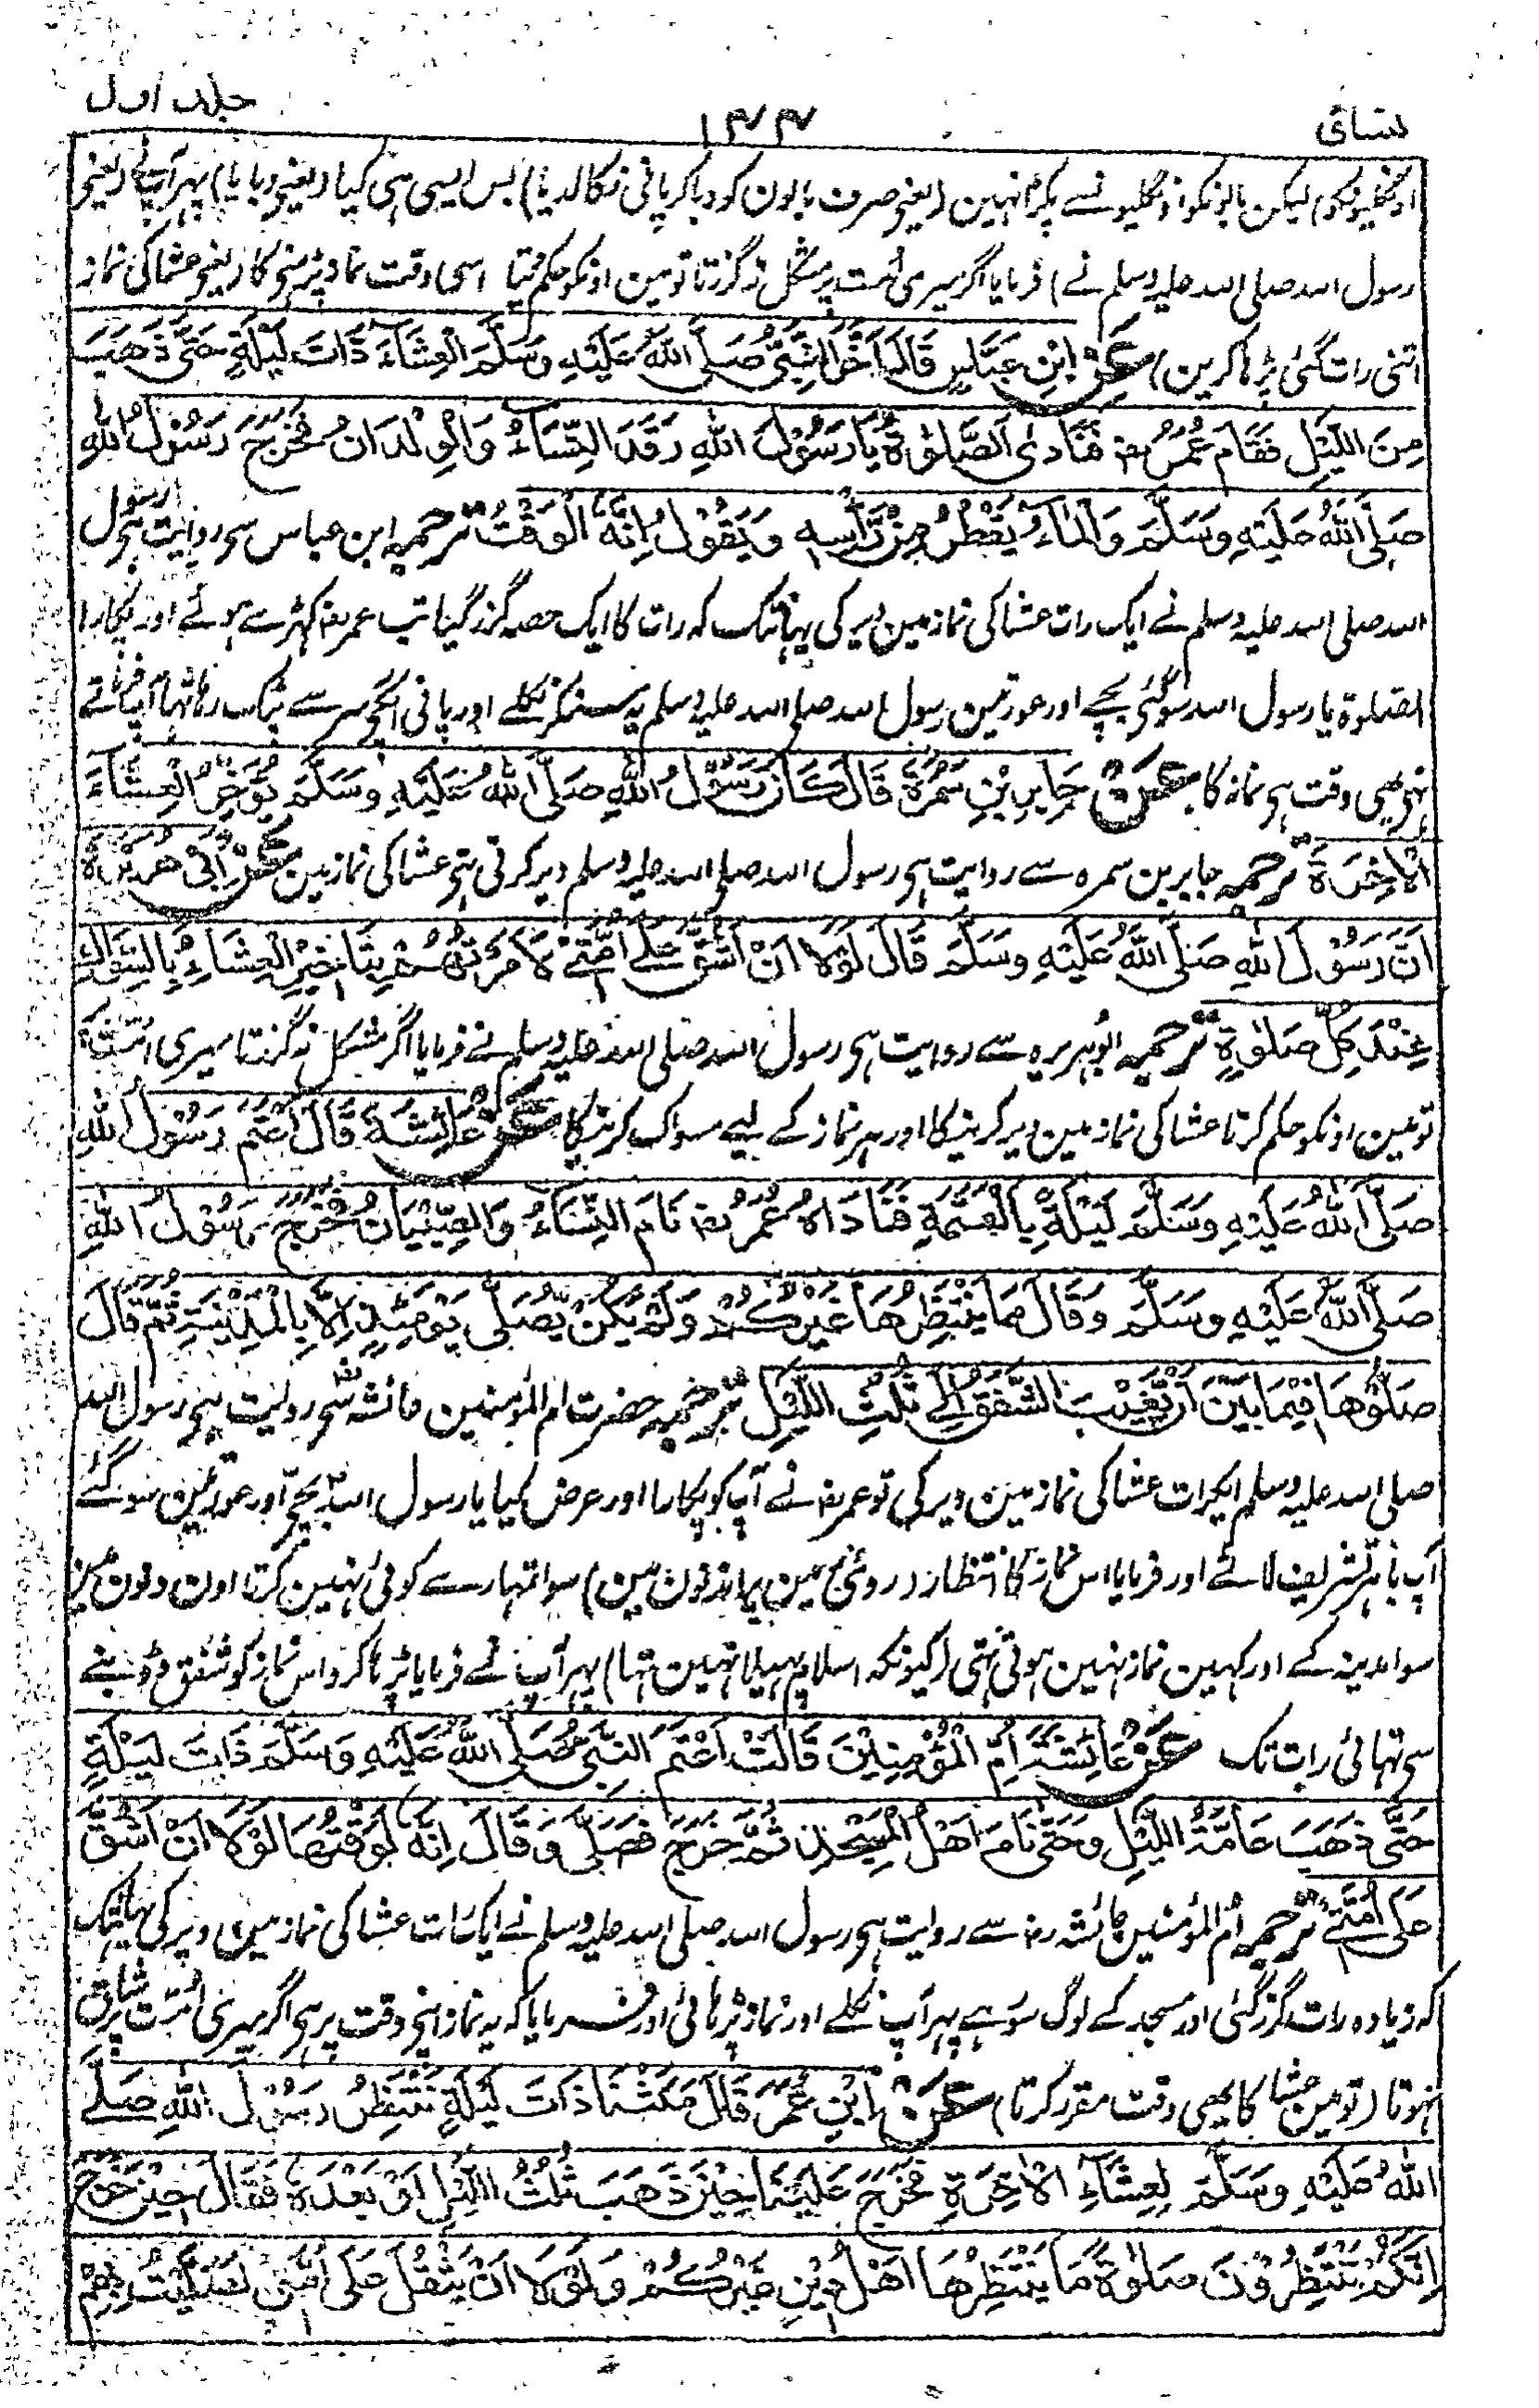 نسائی ۱۴۴ جلد اول
اونگلیونکو) لیکن بالونکو اونگلیونسے پکڑا نہین (یعنی صرف بالون کو دبا کر پانی نکالدیا) بس ایسی ہی کیا (یعنی دبایا) پہر آپ نے (یعنی
رسول اللہ صلی اللہ علیہ وسلم نے) فرمایا اگر میری اُمت پر مشکل نہ گزرتا تو مین اونکو حکم دیتا اسی وقت نماز پڑہنے کا (یعنی عشا کی نماز
اتنی رات گئی پڑہا کرین) عَنْ اِبْنِ عَبَّاسٍ قَالَ اَخَّرَ النَّبِیُّ صَلَّی اللّٰهُ عَلَیْهِ وَسَلَّمَ الْعِشَآءَ ذَاتَ لَیْلَةٍ حَتّٰی ذَهَبَ
مِنَ اللَّیْلِ فَقَامَ عُمَرُ رضہ فَنَادٰی اَلصَّلٰوةُ یَا رَسُوْلَ اللّٰهِ رَقَدَ النِّسَاءُ وَالْوِلْدَانُ فَخَرَجَ رَسُوْلُ اللّٰهِ
صَلَّی اللّٰهُ عَلَیْهِ وَسَلَّمَ وَالْمَآءُ یَقْطُرُ مِنْ رَّأْسِهٖ وَیَقُوْلُ اِنَّهُ الْوَقْتُ ترجمہ ابن عباس سے روایت ہے رسول
اللہ صلی اللہ علیہ وسلم نے ایک رات عشا کی نماز مین دیر کی یہانتک کہ رات کا ایک حصہ گزر گیا تب عمر رضہ کہڑے ہوئے اور پکارا
الصلوۃ یا رسول اللہ سو گئی بچے اور عورتین رسول اللہ صلی اللہ علیہ وسلم یہ سنکر نکلے اور پانی آپکے سر سے ٹپک رہا تہا آپ فرماتے
تہے یہی وقت ہے نماز کا عَنْ جَابِرِ بْنِ سَمُرَةَ قَالَ کَانَ رَسُوْلُ اللّٰهِ صَلَّی اللّٰهُ عَلَیْهِ وَسَلَّمَ یُؤَخِّرُ الْعِشَآءَ
الْاٰخِرَةَ ترجمہ جابر بن سمرہ سے روایت ہے رسول اللہ صلی اللہ علیہ وسلم دیر کرتی تہے عشا کی نماز مین عَنْ اَبِیْ هُرَیْرَةَ
اَنَّ رَسُوْلَ اللّٰهِ صَلَّی اللّٰهُ عَلَیْهِ وَسَلَّمَ قَالَ لَوْلَا اَنْ اَشُقَّ عَلٰی اُمَّتِیْ لَاَمَرْتُهُمْ بِتَاْخِیْرِ الْعِشَاءِ وَبِالسِّوَاكِ
عِنْدَ کُلِّ صَلٰوةٍ ترجمہ ابوہریرہ سے روایت ہے رسول اللہ صلی اللہ علیہ وسلم نے فرمایا اگر مشکل نہ گزرتا میری اُمت پر
تو مین اونکو حکم کرتا عشا کی نماز مین دیر کرنیکا اور ہر نماز کے لیے مسواک کرنیکا عَنْ عَائِشَةَ قَالَ اَعْتَمَ رَسُوْلُ اللّٰهِ
صَلَّی اللّٰهُ عَلَیْهِ وَسَلَّمَ لَیْلَةً بِالْعَتَمَةِ فَنَادَاهُ عُمَرُ رضہ نَامَ النِّسَاءُ وَالصِّبْیَانُ فَخَرَجَ رَسُوْلُ اللّٰهِ
صَلَّی اللّٰهُ عَلَیْهِ وَسَلَّمَ وَقَالَ مَا یَنْتَظِرُهَا غَیْرُکُمْ وَلَمْ یَکُنْ یُصَلّٰی یَوْمَئِذٍ اِلَّا بِالْمَدِیْنَةِ ثُمَّ قَالَ
صَلُّوْهَا فِیْمَا بَیْنَ اَنْ یَّغِیْبَ الشَّفَقُ اِلٰی ثُلُثِ اللَّیْلِ ترجمہ حضرت ام المؤمنین عائشہ سے روایت ہے رسول اللہ
صلی اللہ علیہ وسلم ایکرات عشا کی نماز مین دیر کی تو عمر رضہ نے آپ کو پکارا اور عرض کیا یا رسول اللہ بچے اور عورتین سو گئے
آپ باہر تشریف لائے اور فرمایا اس نماز کا انتظار (روئی زمین پر ان دنون مین) سوا تمہارے کوئی نہین کرتا اون دنون مین
سوا مدینہ کے اور کہین نماز نہین ہوتی تہی (کیونکہ اسلام پہیلا نہین تہا) پہر آپ نے فرمایا پڑہا کرو اس نماز کو شفق ڈوبنے
سے تہائی رات تک عَنْ عَائِشَةَ اُمِّ الْمُؤْمِنِیْنَ قَالَتْ اَعْتَمَ النَّبِیُّ صَلَّی اللّٰهُ عَلَیْهِ وَسَلَّمَ ذَاتَ لَیْلَةٍ
حَتّٰی ذَهَبَ عَامَّةُ اللَّیْلِ وَحَتّٰی نَامَ اَهْلُ الْمَسْجِدِ ثُمَّ خَرَجَ فَصَلّٰی وَقَالَ اِنَّهٗ لَوَقْتُهَا لَوْلَا اَنْ اَشُقَّ
عَلٰی اُمَّتِیْ ترجمہ اُم المؤمنین عائشہ رضہ سے روایت ہے رسول اللہ صلی اللہ علیہ وسلم نے ایک رات عشا کی نماز مین دیر کی یہانتک
کہ زیادہ رات گزر گئی اور مسجد کے لوگ سو رہے پہر آپ نکلے اور نماز پڑہائی اور فرمایا کہ یہ نماز اپنے وقت پر ہے اگر میری اُمت پر شاق
نہوتا (تو مین عشا کا یہی وقت مقرر کرتا) عَنْ اِبْنِ عُمَرَ قَالَ مَکَثْنَا ذَاتَ لَیْلَةٍ نَنْتَظِرُ رَسُوْلَ اللّٰهِ صَلَّی
اللّٰهُ عَلَیْهِ وَسَلَّمَ لِعِشَآءِ الْاٰخِرَةِ فَخَرَجَ عَلَیْنَا حِیْنَ ذَهَبَ ثُلُثُ اللَّیْلِ اَوْ بَعْدَهٗ فَقَالَ حِیْنَ خَرَجَ
اِنَّکُمْ تَنْتَظِرُوْنَ صَلٰوةً مَا یَنْتَظِرُهَا اَهْلُ دِیْنٍ غَیْرُکُمْ وَلَوْلَا اَنْ یَثْقُلَ عَلٰی اُمَّتِیْ لَصَلَّیْتُ بِهِمْ